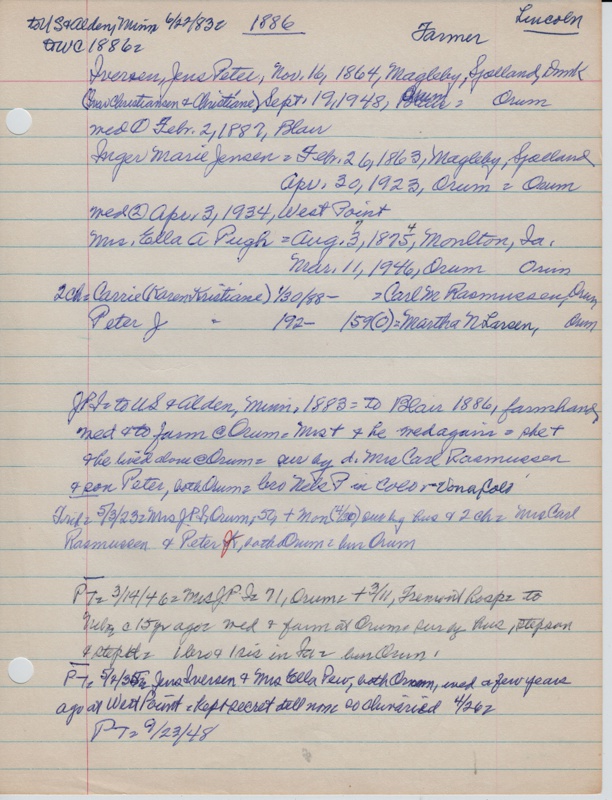 to US & Alden, Minn 6/27/83= 1886 Lincoln
to WC 1886= Farmer
Iversen, Jens Peter, Nov. 16, 1864, Magleby, Sjolland, Dmk
(Christiansen & Christiane) Sept. 19, 1948, Orum = Orum
med ① Febr. 2, 1887, Blair
Inger Marie Jensen = Febr. 26, 1863, Magleby, Sjolland
Apr. 30, 1923, Orum = Orum
med ② Apr. 3, 1934, West Point
Mrs. Ella A Pugh = Aug. 3, 1875, Moulton, Ia.
4
Mar. 11, 1946, Orum Orum
2 ch = Carrie (Karen Kristiane) 1/30/88 - = Carl M Rasmussen, Orum
Peter J " 192- 159(0) = Martha N Larsen, Orum
JPI = to US & Alden, Minn, 1883 = to Blair 1886, farmhand,
med & to farm @ Orum = Mrs + & he med again = she +
& he lived alone @ Orum = sur by d. Mrs Carl Rasmussen
& son Peter, both Orum = bro Nels P in Colo
Trib = 5/3/23 = Mrs J P I, Orum, 59, + Mon (4/30) sur by hus & 2 ch = Mrs Carl
Rasmussen & Peter, both Orum = bur Orum
PT = 3/14/46 = Mrs J P I = 71, Orum = + 3/11, Fremont Hosp = to
Nebr c 15 yr ago = med & farm at Orum = sur by hus, stepson
& stepd = 1 bro & 1 sis in Ia = bur Orum.
PT = Jens Iversen & Mrs Ella, both Orum, med a few years
ago at West Point = kept secret till now so 4/26 =
PT = 9/23/48